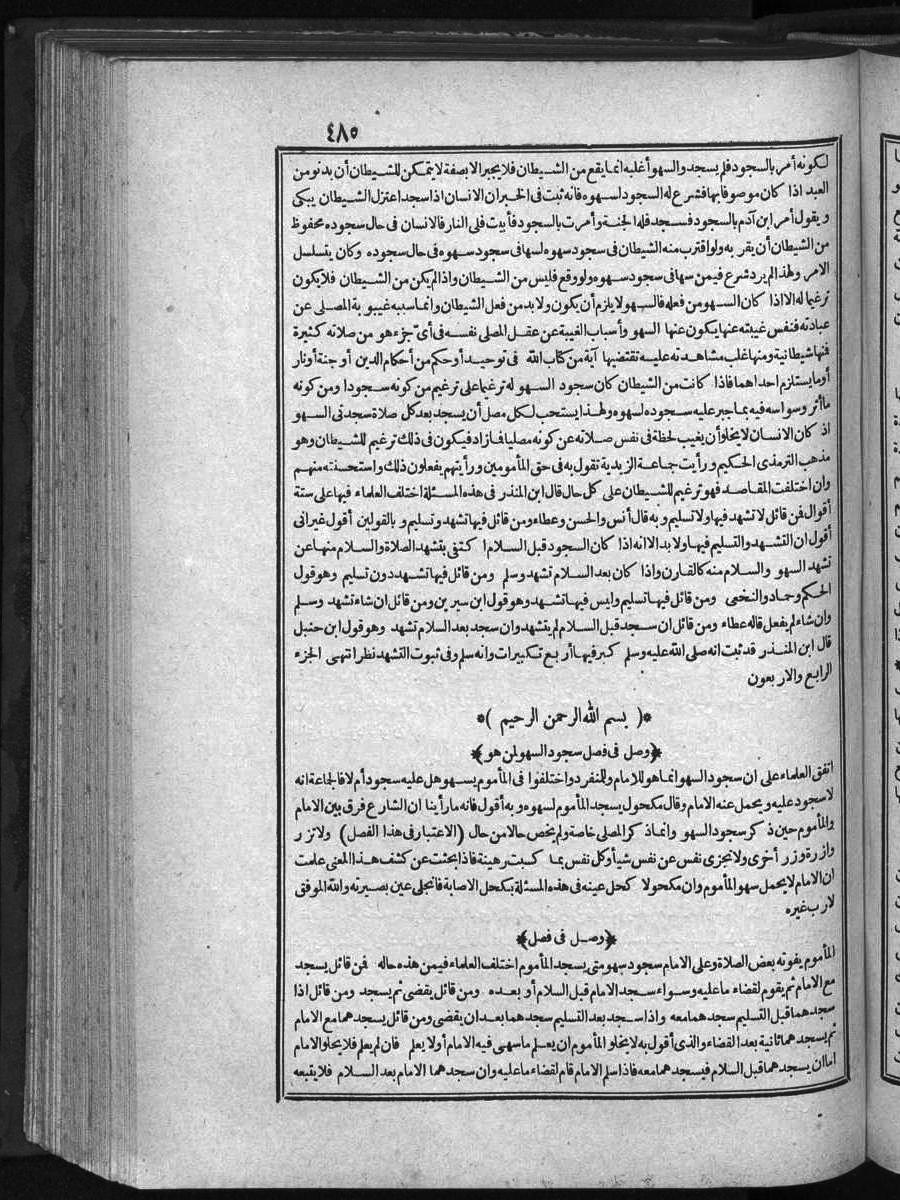 ٤٨٥
لكونه أمر بالسجود فلم يسجد والسهو أغلبه انما يقع من الشيطان فلا يجبر الا بصفة لا يتمكن للشيطان أن يدنو من
العبد اذا كان موصوفا بها فشرع له السجود لسهوه فانه ثبت فى الخبر ان الانسان اذا سجد اعتزل الشيطان يبكى
ويقول أمر ابن آدم بالسجود فسجد فله الجنة وأمرت بالسجود فأبيت فلى النار فالانسان فى حال سجوده محفوظ
من الشيطان أن يقربه ولو اقترب منه الشيطان فى سجود سهوه لسها فى سجود سهوه فى حال سجوده وكان يتسلسل
الامر ولهذا لم يرد شرع فيمن سها فى سجود سهوه ولو وقع فليس من الشيطان واذا لم يكن من الشيطان فلا يكون
ترغيما له الا اذا كان السهو من فعله فالسهو لا يلزم أن يكون ولا بد من فعل الشيطان وانما سببه غيبوبة المصلى عن
عبادته فنفس غيبته عنها يكون عنها السهو وأسباب الغيبة عن عقل المصلى نفسه فى أى جزء هو من صلاته كثيرة
فنها شيطانية ومنها غلب مشاهدته عليه تقتضيها آية من كتاب الله فى توحيد أو حكم من أحكام الدين أو جنة أو نار
أو ما يستلزم احداهما فاذا كانت من الشيطان كان سجود السهو له ترغيما على ترغيم من كونه سجودا ومن كونه
ما أثر وسواسه فيه بما جبر عليه سجوده لسهوه ولهذا يستحب لكل مصل أن يسجد بعد كل صلاة سجدتى السهو
اذ كان الانسان لا يخلو أن يغيب لحظة فى نفس صلاته عن كونه مصليا فما زاد فيكون فى ذلك ترغيم للشيطان وهو
مذهب الترمذى الحكيم ورأيت جماعة الزيدية تقول به فى حق المأمومين ورأيتهم يفعلون ذلك واستحسنته منهم
وان اختلفت المقاصد فهو ترغيم للشيطان على كل حال قال ابن المنذر فى هذه المسئلة اختلف العلماء فيها على ستة
أقوال فن قائل لا تشهد فيها ولا تسليم وبه قال أنس والحسن وعطاء ومن قائل فيها تشهد وتسليم وبالقولين أقول غير انى
أقول ان التشهد والتسليم فيها ولا بد الا انه اذا كان السجود قبل السلام اكتفى بتشهد الصلاة والسلام منها عن
تشهد السهو والسلام منه كالقارن واذا كان بعد السلام تشهد وسلم ومن قائل فيها تشهد دون تسليم وهو قول
الحكم وحماد والنخعى ومن قائل فيها تسليم وليس فيها تشهد وهو قول ابن سيرين ومن قائل ان شاء تشهد وسلم
وان شاء لم يفعل قاله عطاء ومن قائل ان سجد قبل السلام لم يتشهد وان سجد بعد السلام تشهد وهو قول ابن حنبل
قال ابن المنذر قد ثبت انه صلى الله عليه وسلم كبر فيها أربع تكبيرات وانه سلم وفى ثبوت التشهد نظر انتهى الجزء
الرابع والاربعون
*( بسم الله الرحمن الرحيم )*
﴿وصل فى فصل سجود السهو لمن هو﴾
اتفق العلماء على ان سجود السهو انما هو للامام وللمنفرد واختلفوا فى المأموم يسهو هل عليه سجود أم لا فالجاعة انه
لا سجود عليه ويحمل عنه الامام وقال مكحول يسجد المأموم لسهوه وبه أقول فانه ما رأينا ان الشارع فرق بين الامام
والمأموم حين ذكر سجود السهو وانما ذكر المصلى خاصة ولم يخص حالا من حال (الاعتبار فى هذا الفصل) ولا تزر
وازرة وزر أخرى ولا تجزى نفس عن نفس شيأ وكل نفس بما كسبت رهينة فاذا بحثت عن كشف هذا المعنى علمت
ان الامام لا يحمل سهو المأموم وان مكحولا كحل عينه فى هذه المسئلة بكحل الاصابة فانجلى عين بصيرته والله الموفق
لا رب غيره
﴿وصل فى فصل﴾
المأموم يفوته بعض الصلاة وعلى الامام سجود سهو متى يسجد المأموم اختلف العلماء فيمن هذه حاله فن قائل يسجد
مع الامام ثم يقوم لقضاء ما عليه وسواء سجد الامام قبل السلام أو بعده ومن قائل يقضى ثم يسجد ومن قائل اذا
سجدهما قبل التسليم سجدهما معه واذا سجد بعد التسليم سجدهما بعد ان يقضى ومن قائل يسجدهما مع الامام
ثم يسجدهما ثانية بعد القضاء والذى أقول به لا يخلو المأموم ان يعلم ما سهى فيه الامام أولا يعلم فان لم يعلم فلا يخلو الامام
اما ان يسجدهما قبل السلام فيسجدهما معه فاذا سلم الامام قام لقضاء ما عليه وان سجدهما الامام بعد السلام فلا يتبعه